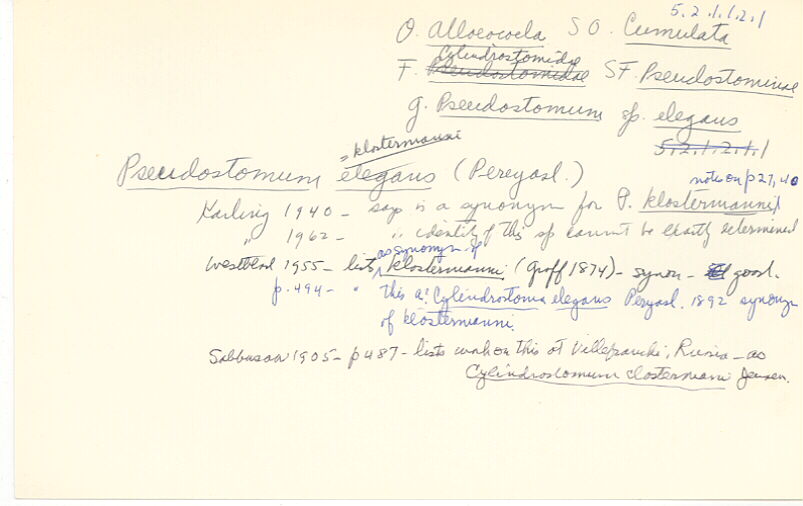 5.2.1.1.2.1
O. Alloeocoela SO. Cumulata
Cylindrostomidae
F. Pseudostomidae SF. Pseudostominae
g. Pseudostomum sp. elegans
5.2.1.2.1.1
= klostermanni
Pseudostomum elegans (Pereyasl.)
notes on p27, 40
Karling 1940 - says is a synonym for P. klostermanni
" 1962 - " identity of this sp cannot be exactly determined
as synonym of
Westblad 1955 - lists klostermanni (Graff 1874) - synon - good.
p. 494 - " this as Cylindrostoma elegans Pereyasl. 1892 synonym
of klostermanni.
Sabussow 1905 - p487 - lists work on this at Villefranche, Russia - as
Cylindrostomum clostermani Jensen.